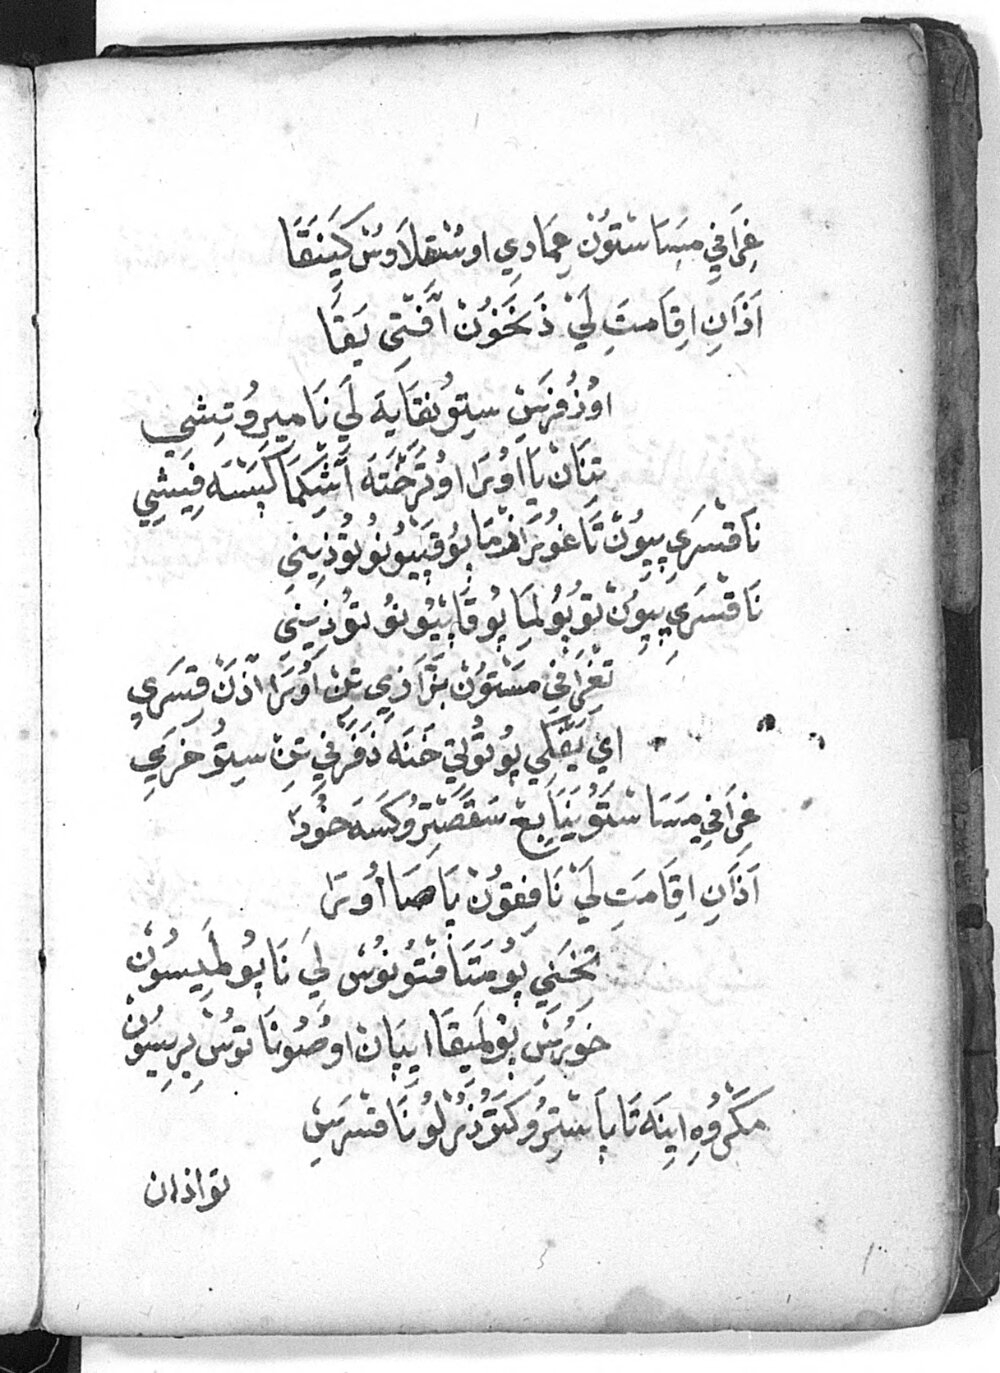 غِرَافِي مِسَاسْتُونْ عِمَادِي اوسْتِقلَاوسْ كَيَنَقَا
اَذَانِ اِقَامَتِ لَيْ ذَخَوُنْ اَفْتِى يَقَا
اوُذُقِرَسِ سِتوُنقَايَه لَيْ نَا مِيرُوتِشِي
تِنَانْ يَا اَوُرَا اوُتَرَخْتَه اَشْكِمَا كَپَسَه فِيشِي
نَا قسَرَىِ پِيِوُنْ تَا غوُرَا مَا پوُقَپِيوُنوُ توُذِينِي
نَا قسَرَىِ پِيِوُنْ توُ پوُلِمَا پوُقَا پِيوُنوُ توُذِينِي
تَغِرَافِي مَسْتوُنْ بَرَاذِي تِنْ اَوُرَا اَذَنْ قِسَرَىِ
اي يَقَكِي پوُ توُتِي خَنَه ذَفَرَفِي تِنِ سِتوُ خَرَىِ
غِرَافِي مَسَاسْتَوُ يَنَابِعْ سَقَصَتِروُكَسَه خوُرَ
اَذَانِ اِقَامَتِ لَيْ نَافِقوُنْ يَاصَا اوُرَا
تُخَنِي پوُ مَتَافْتوُنوُسْ لَيْ نَا پوُ لَمِيسوُنْ
خوَرِسْ پوُ لَمِيقَا اِيپَانْ اوُصوُنَا توُسْ پِرِيسوُنْ
مَكَروُهِ اِينَه تَا پَاسْتِروُ كَتوُذَرْلوُ نَا قسَرَسِ
تو اذان